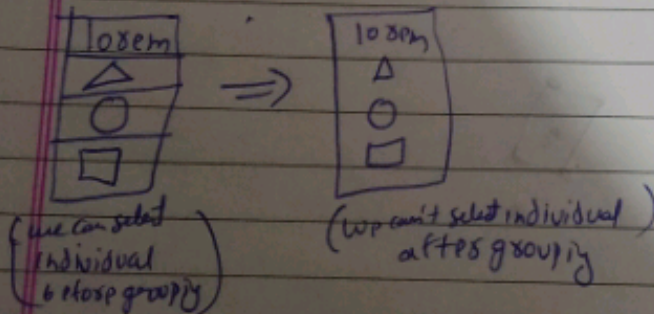 lorem
lorem
(we can select
individual
before grouping)
(we can't select individual)
after grouping